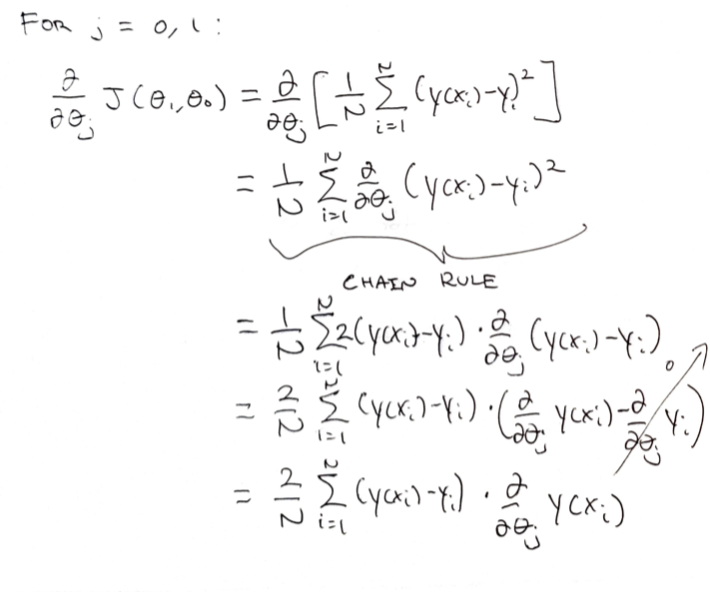 FOR j = 0, 1 :
∂/∂θj J(θ1, θ0) = ∂/∂θj [ 1/N Σ_{i=1}^{N} (y(xi)-yi)² ]
= 1/N Σ_{i=1}^{N} ∂/∂θj (y(xi)-yi)²
CHAIN RULE
= 1/N Σ_{i=1}^{N} 2(y(xi)-yi) · ∂/∂θj (y(xi)-yi)
= 2/N Σ_{i=1}^{N} (y(xi)-yi) · (∂/∂θj y(xi) - ∂/∂θj yi) 0
= 2/N Σ_{i=1}^{N} (y(xi)-yi) · ∂/∂θj y(xi)